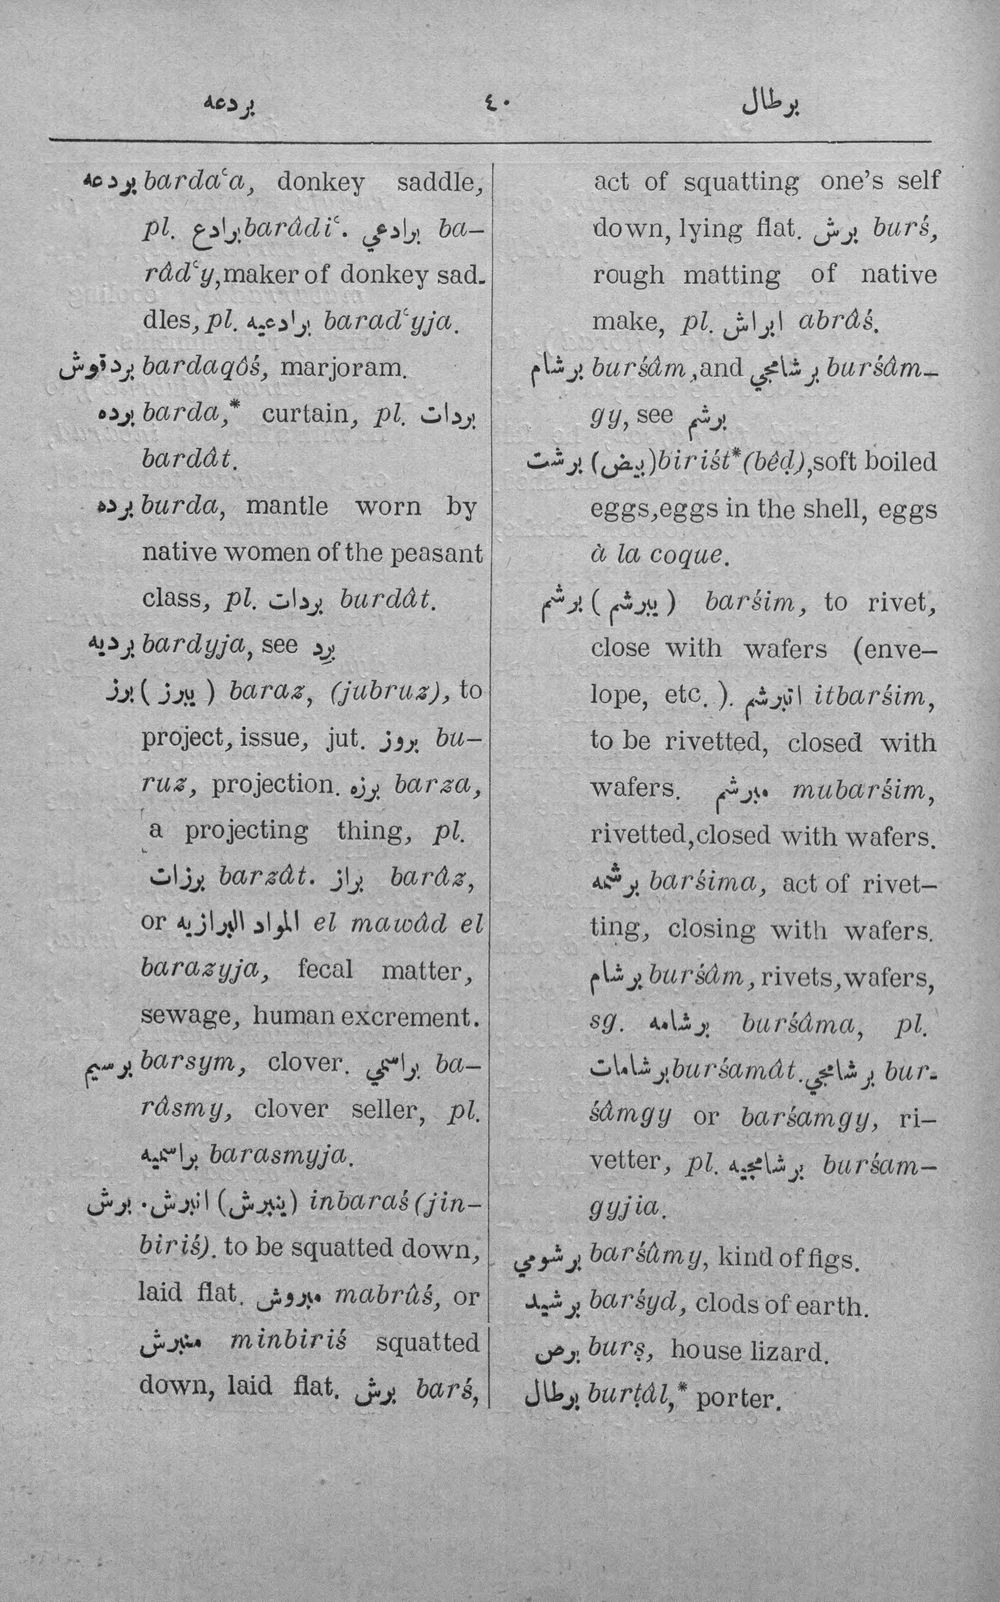 بردعه ٤٠ برطال
بردعه bardaʿa, donkey saddle,
pl. برادع barâdiʿ. برادعي ba–
râdʿy, maker of donkey sad-
dles, pl. برادعيه baradʿyja.
بردقوش bardaqôś, marjoram.
برده barda,* curtain, pl. بردات
bardât.
برده burda, mantle worn by
native women of the peasant
class, pl. بردات burdât.
برديه bardyja, see برد
برز (يبرز) baraz, (jubruz), to
project, issue, jut. بروز bu–
ruz, projection. برزه barza,
a projecting thing, pl.
برزات barzât. براز barâz,
or المواد البرازيه el mawâd el
barazyja, fecal matter,
sewage, human excrement.
برسيم barsym, clover. براسمي ba–
râsmy, clover seller, pl.
براسميه barasmyja.
برش. انبرش (ينبرش) inbaraś (jin–
biriś). to be squatted down,
laid flat. مبروش mabrûś, or
منبرش minbiriś squatted
down, laid flat. برش barś,
act of squatting one's self
down, lying flat. برش burś,
rough matting of native
make, pl. ابراش abrâś.
برشام burśâm, and برشامجي burśâm–
gy, see برشم
برشت (بيض) biriśt* (bêḍ), soft boiled
eggs, eggs in the shell, eggs
à la coque.
برشم (يبرشم) barśim, to rivet,
close with wafers (enve–
lope, etc.). اتبرشم itbarśim,
to be rivetted, closed with
wafers. مبرشم mubarśim,
rivetted, closed with wafers.
برشمه barśima, act of rivet–
ting, closing with wafers.
برشام burśâm, rivets, wafers,
sg. برشامه burśâma, pl.
برشامات burśamât. برشامجي bur-
śâmgy or barśamgy, ri–
vetter, pl. برشامجيه burśam–
gyjia.
برشومي barśûmy, kind of figs.
برشيد barśyd, clods of earth.
برص burṣ, house lizard.
برطال burṭâl,* porter.